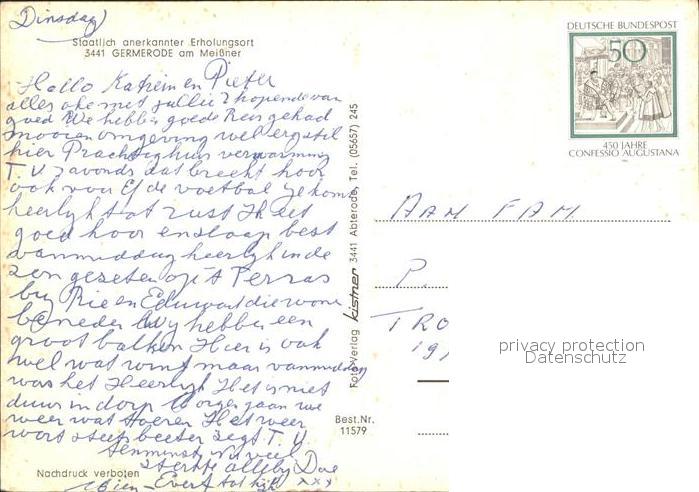 Dinsdag
Staatlich anerkannter Erholungsort
3441 GERMERODE am Meißner
Hallo Katrein en Pieter
alles oke met jullie? hopende van
goed We hebben goede Reis gehad
mooie omgeving wel erg stil
hier Prachtig huis verwarming
T.V. savonds dat brecht hoor
ook voor Ef de voetbal Je komt
heerlyk tot rust Ik eet
goed hoor en slaap best
vanmiddag heerlyk in de
zon gezeten op 't Terras
by Rie en Eduward die wone
beneden Wy hebben een
groot balkon Hier is ook
wel wat wint maar vanmiddag
was het Heerlyk Het is niet
duur in dorp Morgen gaan we
weer wat Het weer
wort steets beeter zegt T.V.
veel
sterkte
Evert xxx
Nachdruck verboten
Foto-Verlag kistner 3441 Abterode, Tel. (05657) 245
Best.Nr.
11579
DEUTSCHE BUNDESPOST
50
450 JAHRE
CONFESSIO AUGUSTANA
AAN FAM
P.
TRO
19
privacy protection
Datenschutz